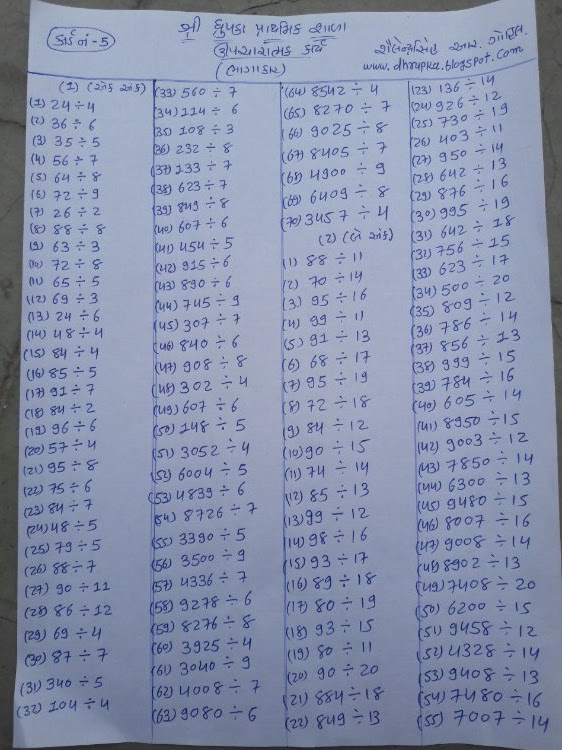 કાર્ડ નં - 5
શ્રી ધ્રુપકા પ્રાથમિક શાળા
ઉપચારાત્મક કાર્ય
(ભાગાકાર)
શૈલેન્દ્રસિંહ આર. ગોહિલ
www.dhrupka.blogspot.com
(1) (એક અંક)
(1) 24 ÷ 4
(2) 36 ÷ 6
(3) 35 ÷ 5
(4) 56 ÷ 7
(5) 64 ÷ 8
(6) 72 ÷ 9
(7) 26 ÷ 2
(8) 88 ÷ 8
(9) 63 ÷ 3
(10) 72 ÷ 8
(11) 65 ÷ 5
(12) 69 ÷ 3
(13) 24 ÷ 6
(14) 48 ÷ 4
(15) 84 ÷ 4
(16) 85 ÷ 5
(17) 91 ÷ 7
(18) 84 ÷ 2
(19) 96 ÷ 6
(20) 57 ÷ 4
(21) 95 ÷ 8
(22) 75 ÷ 6
(23) 84 ÷ 7
(24) 48 ÷ 5
(25) 79 ÷ 5
(26) 88 ÷ 7
(27) 90 ÷ 11
(28) 86 ÷ 12
(29) 69 ÷ 4
(30) 87 ÷ 7
(31) 340 ÷ 5
(32) 104 ÷ 4
(33) 560 ÷ 7
(34) 114 ÷ 6
(35) 108 ÷ 3
(36) 232 ÷ 8
(37) 133 ÷ 7
(38) 623 ÷ 7
(39) 849 ÷ 8
(40) 607 ÷ 6
(41) 454 ÷ 5
(42) 915 ÷ 6
(43) 890 ÷ 6
(44) 745 ÷ 9
(45) 307 ÷ 7
(46) 840 ÷ 6
(47) 908 ÷ 8
(48) 302 ÷ 4
(49) 607 ÷ 6
(50) 148 ÷ 5
(51) 3052 ÷ 4
(52) 6004 ÷ 5
(53) 4839 ÷ 6
(54) 8726 ÷ 7
(55) 3390 ÷ 5
(56) 3500 ÷ 9
(57) 4336 ÷ 7
(58) 9278 ÷ 6
(59) 8276 ÷ 8
(60) 3925 ÷ 4
(61) 3040 ÷ 9
(62) 4008 ÷ 7
(63) 9080 ÷ 6
(64) 8542 ÷ 4
(65) 8270 ÷ 7
(66) 9025 ÷ 8
(67) 8405 ÷ 7
(68) 4900 ÷ 9
(69) 6409 ÷ 8
(70) 3457 ÷ 4
(2) (બે અંક)
(1) 88 ÷ 11
(2) 70 ÷ 14
(3) 95 ÷ 16
(4) 99 ÷ 11
(5) 91 ÷ 13
(6) 68 ÷ 17
(7) 95 ÷ 19
(8) 72 ÷ 18
(9) 84 ÷ 12
(10) 90 ÷ 15
(11) 74 ÷ 14
(12) 85 ÷ 13
(13) 99 ÷ 12
(14) 98 ÷ 16
(15) 93 ÷ 17
(16) 89 ÷ 18
(17) 80 ÷ 19
(18) 93 ÷ 15
(19) 80 ÷ 11
(20) 90 ÷ 20
(21) 884 ÷ 18
(22) 849 ÷ 13
(23) 136 ÷ 14
(24) 926 ÷ 12
(25) 730 ÷ 19
(26) 403 ÷ 11
(27) 950 ÷ 14
(28) 642 ÷ 13
(29) 876 ÷ 16
(30) 995 ÷ 19
(31) 642 ÷ 18
(32) 756 ÷ 15
(33) 623 ÷ 17
(34) 500 ÷ 20
(35) 809 ÷ 12
(36) 786 ÷ 14
(37) 856 ÷ 13
(38) 999 ÷ 15
(39) 784 ÷ 16
(40) 605 ÷ 14
(41) 8950 ÷ 15
(42) 9003 ÷ 12
(43) 7850 ÷ 14
(44) 6300 ÷ 13
(45) 9480 ÷ 15
(46) 8007 ÷ 16
(47) 9008 ÷ 14
(48) 8902 ÷ 13
(49) 7408 ÷ 20
(50) 6200 ÷ 15
(51) 9458 ÷ 12
(52) 4328 ÷ 14
(53) 9408 ÷ 13
(54) 7480 ÷ 16
(55) 7007 ÷ 14